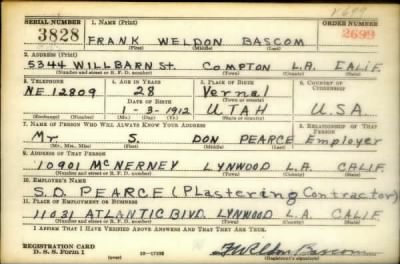 V699
SERIAL NUMBER 1. NAME (Print) ORDER NUMBER
3828 FRANK WELDON BASCOM 2699
(First) (Middle) (Last)
2. ADDRESS (Print)
5344 WILLBARN St. COMPTON L.A. CALIF
(Number and street or R. F. D. number) (Town) (County) (State)
3. TELEPHONE 4. AGE IN YEARS 5. PLACE OF BIRTH 6. COUNTRY OF CITIZENSHIP
NE 12809 28 Vernal
DATE OF BIRTH (Town or county)
1-3-1912 UTAH U.S.A.
(Exchange) (Number) (Mo.) (Day) (Yr.) (State or country)
7. NAME OF PERSON WHO WILL ALWAYS KNOW YOUR ADDRESS 8. RELATIONSHIP OF THAT PERSON
Mr S. DON PEARCE Employer
(Mr., Mrs., Miss) (First) (Middle) (Last)
9. ADDRESS OF THAT PERSON
10901 McNERNEY LYNWOOD L.A. CALIF.
(Number and street or R. F. D. number) (Town) (County) (State)
10. EMPLOYER'S NAME
S.D. PEARCE (Plastering Contractor)
11. PLACE OF EMPLOYMENT OR BUSINESS
11031 ATLANTIC BLVD. LYNWOOD L.A. CALIF
(Number and street or R. F. D. number) (Town) (County) (State)
I AFFIRM THAT I HAVE VERIFIED ABOVE ANSWERS AND THAT THEY ARE TRUE.
REGISTRATION CARD
D. S. S. FORM 1 (over) F Weldon Bascom
(Registrant's signature)